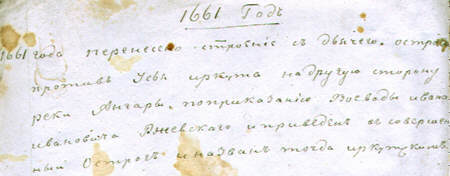 1661 Годъ
1661 года перенесено строенiе съ дьячего остро
противъ Усья иркута на другую сторону
реки Ангары, поприказанiю Воеводы ивана
ивановича Ржевскаго и приведенъ въ совершен
ный Острогъ и названъ тогда иркутскимъ